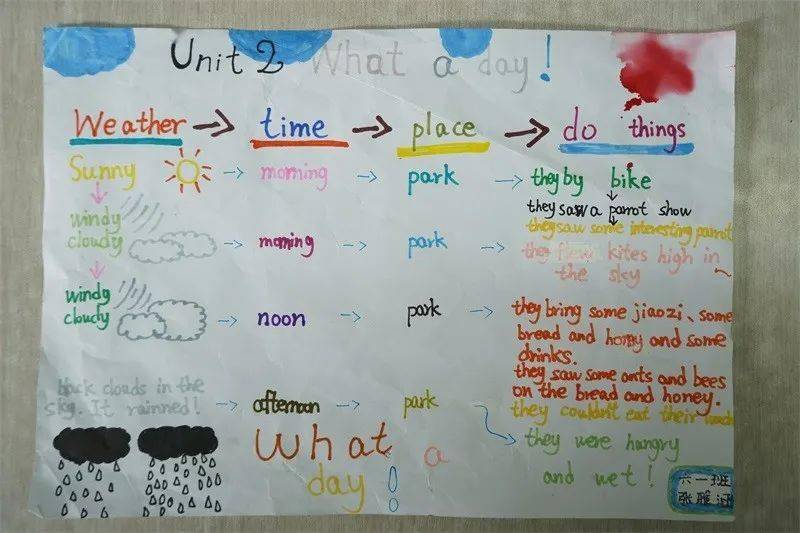 Unit 2 What a day!
Weather → time → place → do things
Sunny → morning → park → they by bike
they saw a parrot show
they saw some interesting parrot
windy
cloudy → morning → park → they flew kites high in
the sky
windy
cloudy → noon → park → they bring some jiaozi、some
bread and honey and some
drinks.
they saw some ants and bees
on the bread and honey.
they couldn't eat their lunch
black clouds in the
sky. It rainned! → afternoon → park
they were hungry
and wet!
What a
day!
六一班
张暖